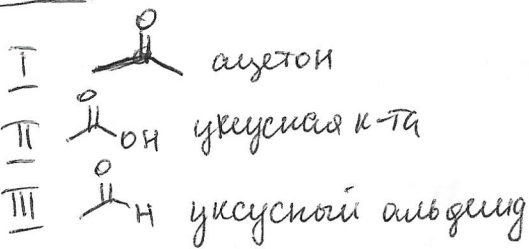 I O ацетон
II O OH уксусная к-та
III O H уксусный альдегид